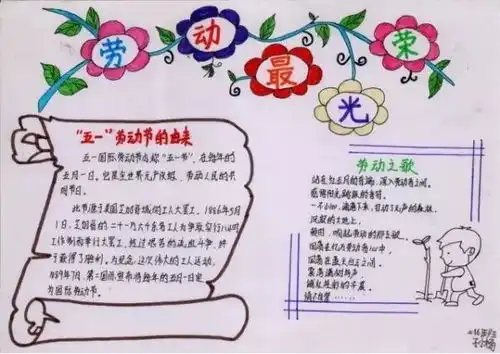 劳动最光荣
“五一”劳动节的由来
五一国际劳动节亦称“五一节”，在每年的
五月一日。它是全世界无产阶级、劳动人民的共
同节日。
此节源于美国芝加哥城的工人大罢工。1886年5月
1日，芝加哥的二十一万六千余名工人为争取实行八小时
工作制而举行大罢工，经过艰苦的流血斗争，终
于获得了胜利。为纪念这次伟大的工人运动，
1889年7月，第二国际宣布将每年的五月一日定
为国际劳动节。
劳动之歌
站在红五月的肩端，深入劳动者之间。
一不小心，滴落下来，
沉寂的土地上，
顿时，响起劳动的那主歌，
回荡在亿万劳动者心中，
回荡在蓝天白云之间。